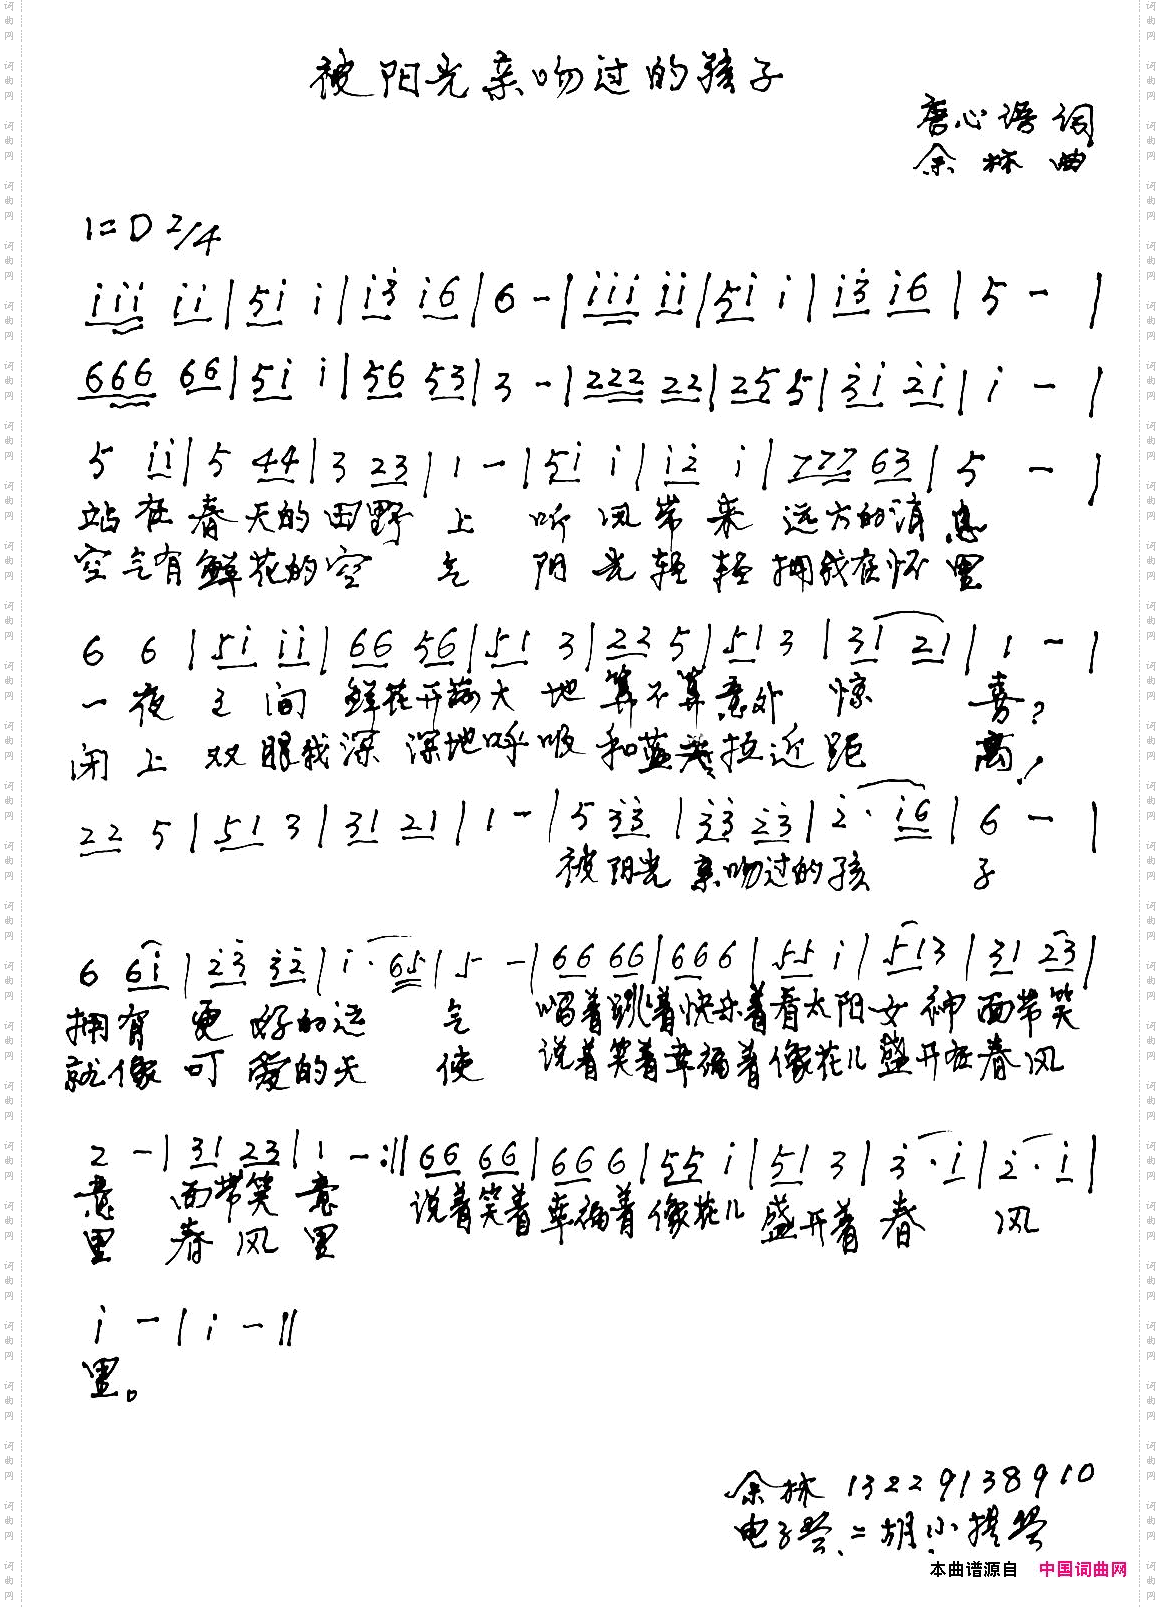 被阳光亲吻过的孩子
唐心语 词
余林 曲
1=D 2/4
i i i i i | 5 i i | i 3̇ i 6 | 6 - | i i i i i | 5 i i | i 3̇ i 6 | 5 - |
6 6 6 6 6 | 5 i i | 5 6 5 3 | 3 - | 2 2 2 2 2 | 2 5 5 | 3̇ i 2̇ i | i - |
5 i i | 5 4 4 | 3 2 3 | 1 - | 5 i i | i 2̇ i | 7 7 7 6 3 | 5 - |
站在春天的田野上 听风带来远方的消息
空气有鲜花的空气 阳光轻轻拥我在怀里
6 6 | 5 i i i | 6 6 5 6 | 5 1 3 | 2 2 5 | 5 1 3 | 3 1 2 1 | 1 - |
一夜之间 鲜花开满大地 算不算意外惊喜?
闭上双眼我深深地呼吸 和蓝天拉近距离!
2 2 5 | 5 1 3 | 3 1 2 1 | 1 - | 5 3̇ 3̇ | 3̇ 3̇ 2̇ 3̇ | 2̇ · i 6 | 6 - |
被阳光亲吻过的孩子
6 6 i | 2̇ 3̇ 3̇ 2̇ | i · 6 5 | 5 - | 6 6 6 6 | 6 6 6 | 5 5 i | 5 1 3 | 3 1 2 3 |
拥有更好的运气 唱着跳着快乐着看太阳女神面带笑
就像可爱的天使 说着笑着幸福着像花儿盛开在春风
2 - | 3 1 2 3 | 1 - :|| 6 6 6 6 | 6 6 6 | 5 5 i | 5 1 3 | 3̇ · i | 2̇ · i |
意 面带笑意 说着笑着幸福着像花儿盛开着春风
里 春风里
i - | i - ||
里。
余林 13229138910
电子琴、二胡、小提琴
本曲谱源自 中国词曲网
词曲网